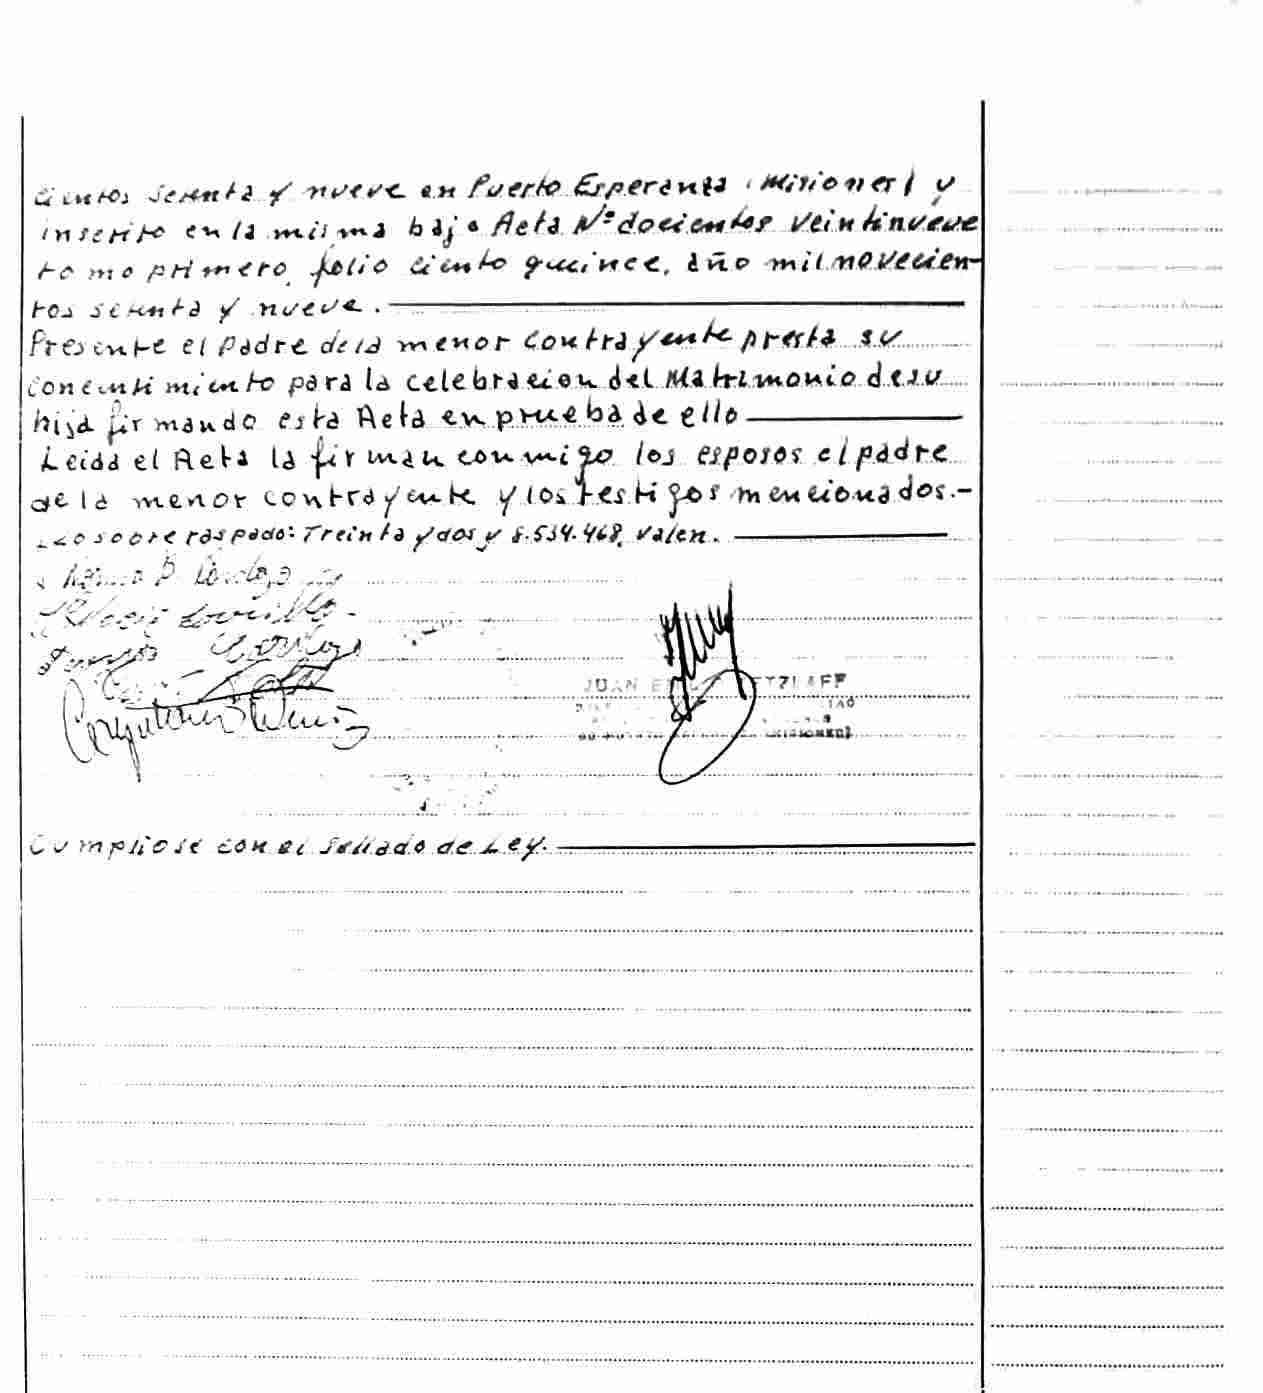 cientos setenta y nueve en Puerto Esperanza (Misiones) y
inscrito en la misma bajo Acta Nº docientos veintinueve
tomo primero, folio ciento quince, año mil novecien-
tos setenta y nueve.
Presente el padre de la menor contrayente presta su
concentimiento para la celebracion del Matrimonio de su
hija firmando esta Acta en prueba de ello
Leida el Acta la firman conmigo los esposos el padre
de la menor contrayente y los testigos mencionados.-
sobre raspado: Treinta y dos y 8.534.468, valen.
JUAN
(MISIONES)
Cumpliose con el sellado de Ley.